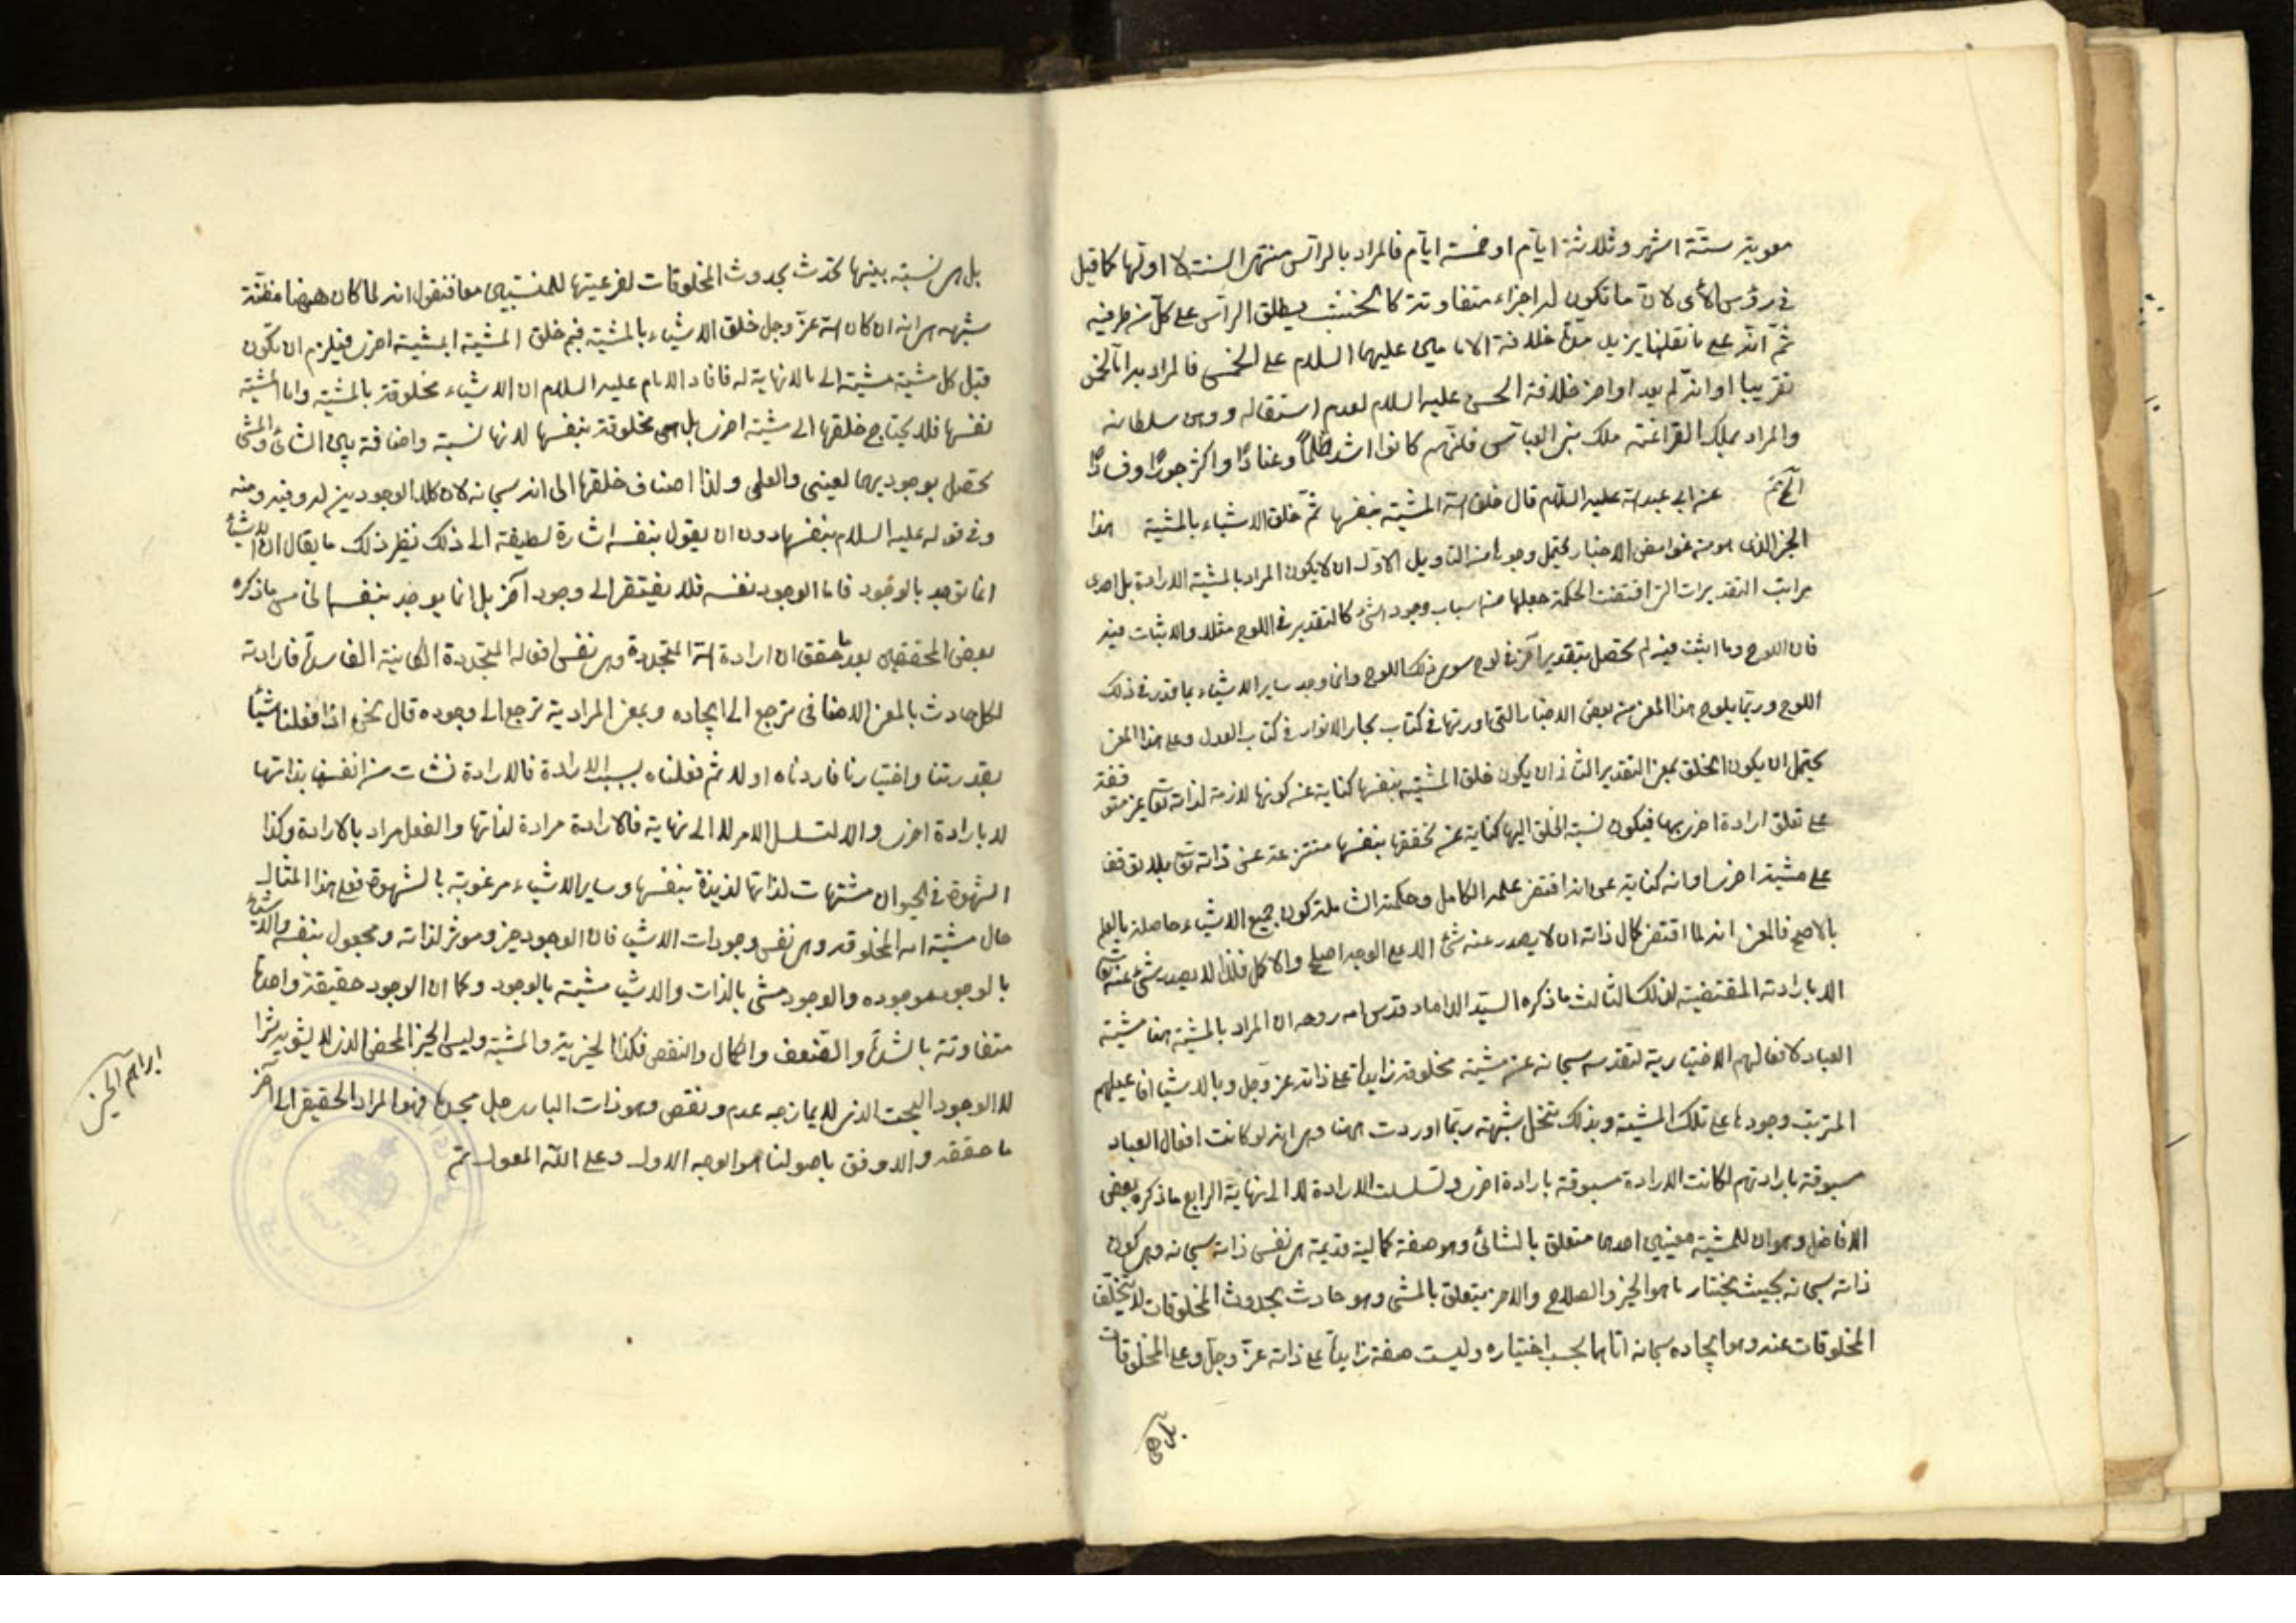 معوية ستة اشهر وثلاثة ايام او خمسة ايام فالمراد بالرأس منتهى السنة لا اولها كما قيل
في رؤس الآى لان ما تكون له اجزاء متفاوتة كالخشب يطلق الراس على كل من طرفيه
ثم انه على ما نقلنا يزيد مدة خلافة الامامين عليهما السلام على الخمس فالمراد بدا
تقريبا او انه لم يعد اواخر خلافة الحسن عليه السلام لعدم استقلاله ووهن سلطانه
والمراد بملك الفراعنة ملك بنى العباس فانهم كانوا اشد ظلماً وعنادًا واكثر جورًا وفسادًا
عن ابى عبد الله عليه السلام قال خلق الله المشية بنفسها ثم خلق الاشياء بالمشية هذا
الخبر الذى هو من غوامض الاخبار يحتمل وجوها من التاويل الاول ان لا يكون المراد بالمشية الارادة بل احدى
مراتب التقديرات التى اقتضت الحكمة جعلها من اسباب وجود الشئ كالتقدير فى اللوح مثلا والاثبات فيه
فان اللوح وما اثبت فيه لم يحصل بتقدير آخر فى لوح سوى ذلك اللوح وانما وجد ساير الاشياء بما قدر فى ذلك
اللوح وربما يلوح هذا المعنى من بعض الاخبار التى اوردتها فى كتاب بحار الانوار فى كتاب العدل وعلى هذا المعنى
يحتمل ان يكون الخلق بمعنى التقدير الثانى ان يكون خلق المشية بنفسها كناية عن كونها لازمة لذاته تع غير متوقفة
على تعلق ارادة اخرى بها فيكون نسبة الخلق اليها كناية عن تحققها بنفسها منتزعة عن ذاته تع بلا توقف
على مشية اخرى او انه كناية عن انه اقتضى علمه الكامل وحكمته الشاملة كون جميع الاشياء حاصلة بالعلم
بالاصلح فالمعنى انه لما اقتضى كمال ذاته ان لا يصدر عنه شئ الا على الوجه اصلح والاكمل فلذا لا يصدر شئ عنه تع
الا بارادته المقتضية لذلك الثالث ما ذكره السيد الداماد قدس الله روحه ان المراد بالمشية هنا مشية
العباد لافعالهم الاختيارية لتقدسه سبحانه عن مشية مخلوقة زايدة على ذاته عز وجل وبالاشيا افاعيلهم
المترتب وجودها على تلك المشية وبذلك تنحل شبهة ربما اوردت هنا وهى انه لو كانت افعال العباد
مسبوقة بارادتهم لكانت الارادة مسبوقة بارادة اخرى وتسلسلت الارادة لا الى نهاية الرابع ما ذكره بعض
الافاضل وهو ان للمشية معنيين احدهما متعلق بالشائى وهو صفة كمالية قديمة هى نفس ذاته سبحانه وهى كون
ذاته سبحانه بحيث يختار ما هو الخير والصلاح والاخر يتعلق بالمشى وهو حادث بحدوث المخلوقات لا يتخلف
المخلوقات عنه وهو ايجاده سبحانه اياها بحسب اختياره وليست صفة زايدة على ذاته عز وجل وعلى المخلوقات
بل هى
بل هى نسبة بينهما تحدث بحدوث المخلوقات لفرعيتها للمنتسبين معا فنقول انه لما كان ههنا مظنة
شبهه هى انه ان كان الله عز وجل خلق الاشياء بالمشية فبم خلق المشية ابمشية اخرى فيلزم ان يكون
قبل كل مشية مشية الى ما لا نهاية له فافاد الامام عليه السلام ان الاشياء مخلوقة بالمشية واما المشية
نفسها فلا يحتاج خلقها الى مشية اخرى بل هى مخلوقة بنفسها لانها نسبة واضافة بين الشائى والمشى
تحصل بوجوديهما لعينى والعلمى ولذا اضاف خلقها الى الله سبحانه لان كلا الوجودين له وفيه ومنه
وفى قوله عليه السلام بنفسها دون ان يقول بنفسه اشارة لطيفة الى ذلك نظير ذلك ما يقال ان الاشياء
انما توجد بالوجود فاما الوجود نفسه فلا يفتقر الى وجود آخر بل انما يوجد بنفسه الخامس ما ذكره
بعض المحققين بعد ما حقق ان ارادة الله المتجددة هى نفس افعاله المتجددة الكاينة الفاسدة فارادته
لكل حادث بالمعنى الاضافى يرجع الى ايجاده وبمعنى المرادية ترجع الى وجوده قال نحن اذا فعلنا شيئا
بقدرتنا واختيارنا فاردناه اولا ثم فعلناه بسبب الارادة فالارادة نشات من انفسنا بذاتها
لا بارادة اخرى والا لتسلسل الامر لا الى نهاية فالارادة مرادة لذاتها والفعل مراد بالارادة وكذا
الشهوة فى الحيوان مشتهات لذاتها لذيذة بنفسها وساير الاشياء مرغوبة بالشهوة فعلى هذا المثال
حال مشية الله المخلوقة وهى نفس وجودات الاشيا فان الوجود خير وموثر لذاته ومجعول بنفسه والاشياء
بالوجود موجوده والوجود مشى بالذات والاشيا مشية بالوجود وكما ان الوجود حقيقة واحدة
متفاوتة بالشدة والضعف والكمال والنقص فكذا الخيرية والمشية وليس الخير المحض الذى لا يشوبه شر
الا الوجود البحت الذى لا يمازجه عدم ونقص وهو ذات البارى جل مجده فهو المراد الحقيقى الى آخر
ما حققه والاوفق باصولنا هو الوجه الاول وعلى الله المعول تم